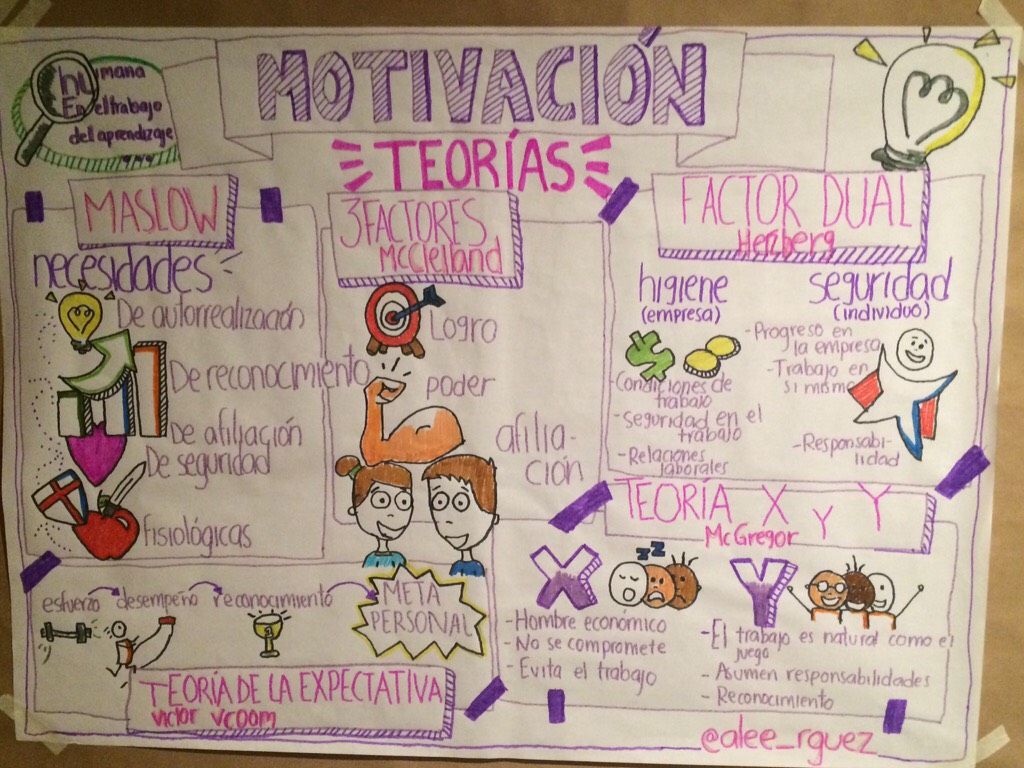 MOTIVACIÓN
humana
En el trabajo
del aprendizaje
TEORÍAS
MASLOW
necesidades
De autorrealización
De reconocimiento
De afiliación
De seguridad
fisiológicas
3 FACTORES
McClelland
Logro
poder
afilia-
ción
FACTOR DUAL
Herzberg
higiene
(empresa)
-Condiciones de
trabajo
-seguridad en el
trabajo
-Relaciones
laborales
seguridad
(individuo)
-Progreso en
la empresa
-Trabajo en
si mismo
-Responsabi-
lidad
TEORÍA X Y Y
McGregor
X
zzz
- Hombre económico
- No se compromete
- Evita el trabajo
Y
-El trabajo es natural como el
juego
- Asumen responsabilidades
- Reconocimiento
esfuerzo desempeño reconocimiento
META
PERSONAL
TEORÍA DE LA EXPECTATIVA
Victor Vroom
@alee_rguez